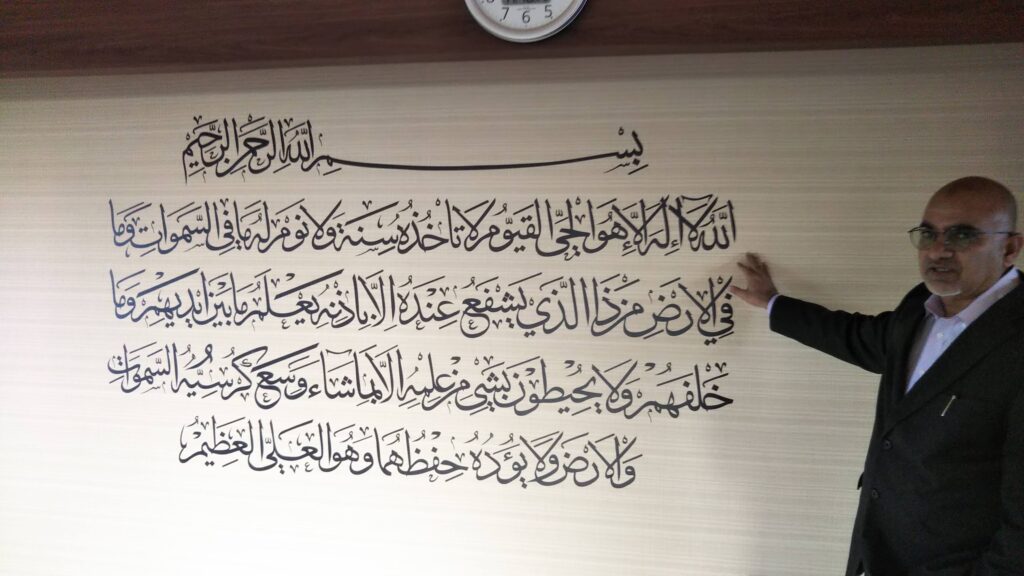 7 6 5
بِسْمِ اللهِ الرَّحْمٰنِ الرَّحِيْمِ
اَللهُ لَآ اِلٰهَ اِلَّا هُوَ الْحَيُّ الْقَيُّوْمُ لَا تَأْخُذُهٗ سِنَةٌ وَّلَا نَوْمٌ لَهٗ مَا فِي السَّمٰوَاتِ وَمَا
فِي الْاَرْضِ مَنْ ذَا الَّذِيْ يَشْفَعُ عِنْدَهٗ اِلَّا بِاِذْنِهٖ يَعْلَمُ مَا بَيْنَ اَيْدِيْهِمْ وَمَا
خَلْفَهُمْ وَلَا يُحِيْطُوْنَ بِشَيْءٍ مِّنْ عِلْمِهٖ اِلَّا بِمَا شَاءَ وَسِعَ كُرْسِيُّهُ السَّمٰوَاتِ
وَالْاَرْضَ وَلَا يَؤُدُهٗ حِفْظُهُمَا وَهُوَ الْعَلِيُّ الْعَظِيْمُ